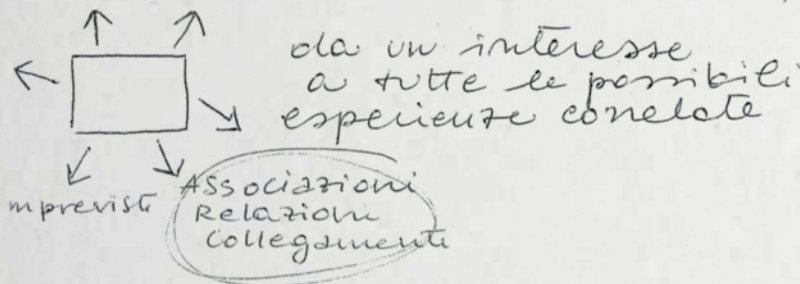 da un interesse
a tutte le possibili
esperienze correlate
mprevisti
Associazioni
Relazioni
Collegamenti